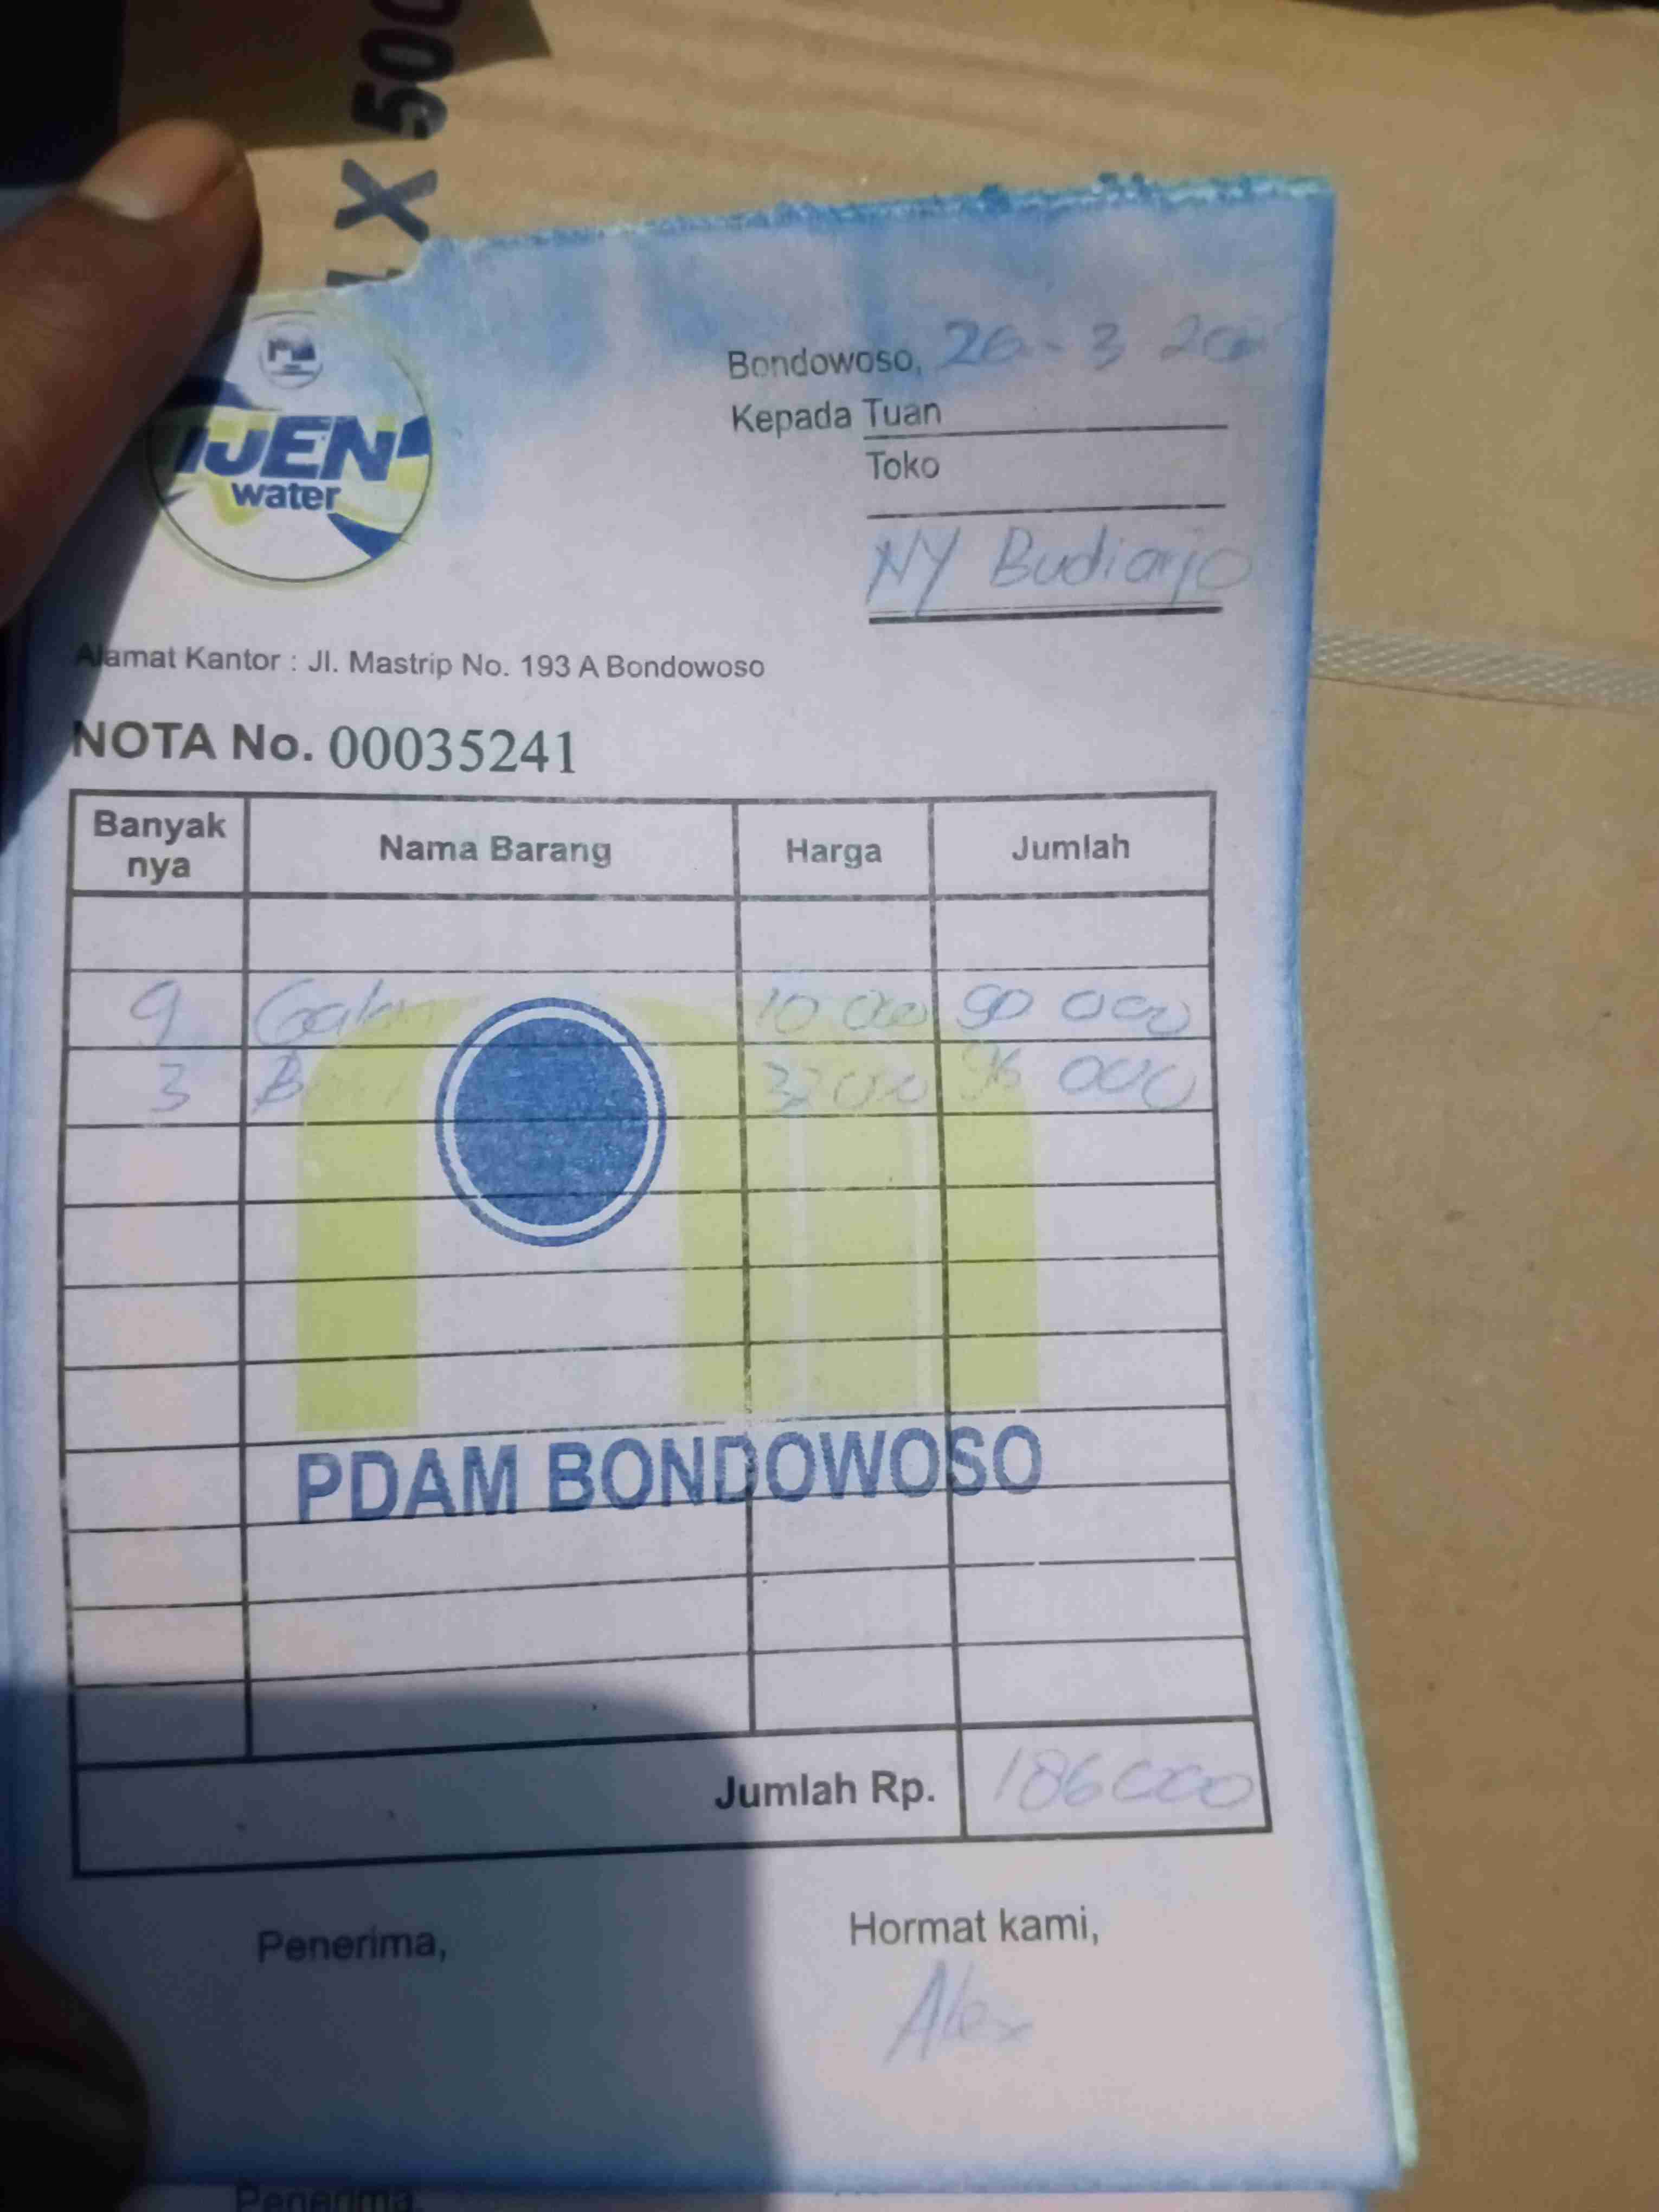 X 500
IJEN
water
Bondowoso, 26 - 3
Kepada Tuan
Toko
NY Budiarjo
Alamat Kantor : Jl. Mastrip No. 193 A Bondowoso
NOTA No. 00035241
Banyak nya Nama Barang Harga Jumlah
9 Galon 10 000 90 000
3 B 32000 96 000
PDAM BONDOWOSO
Jumlah Rp. 186000
Penerima, Hormat kami,
Alex
Penerima,